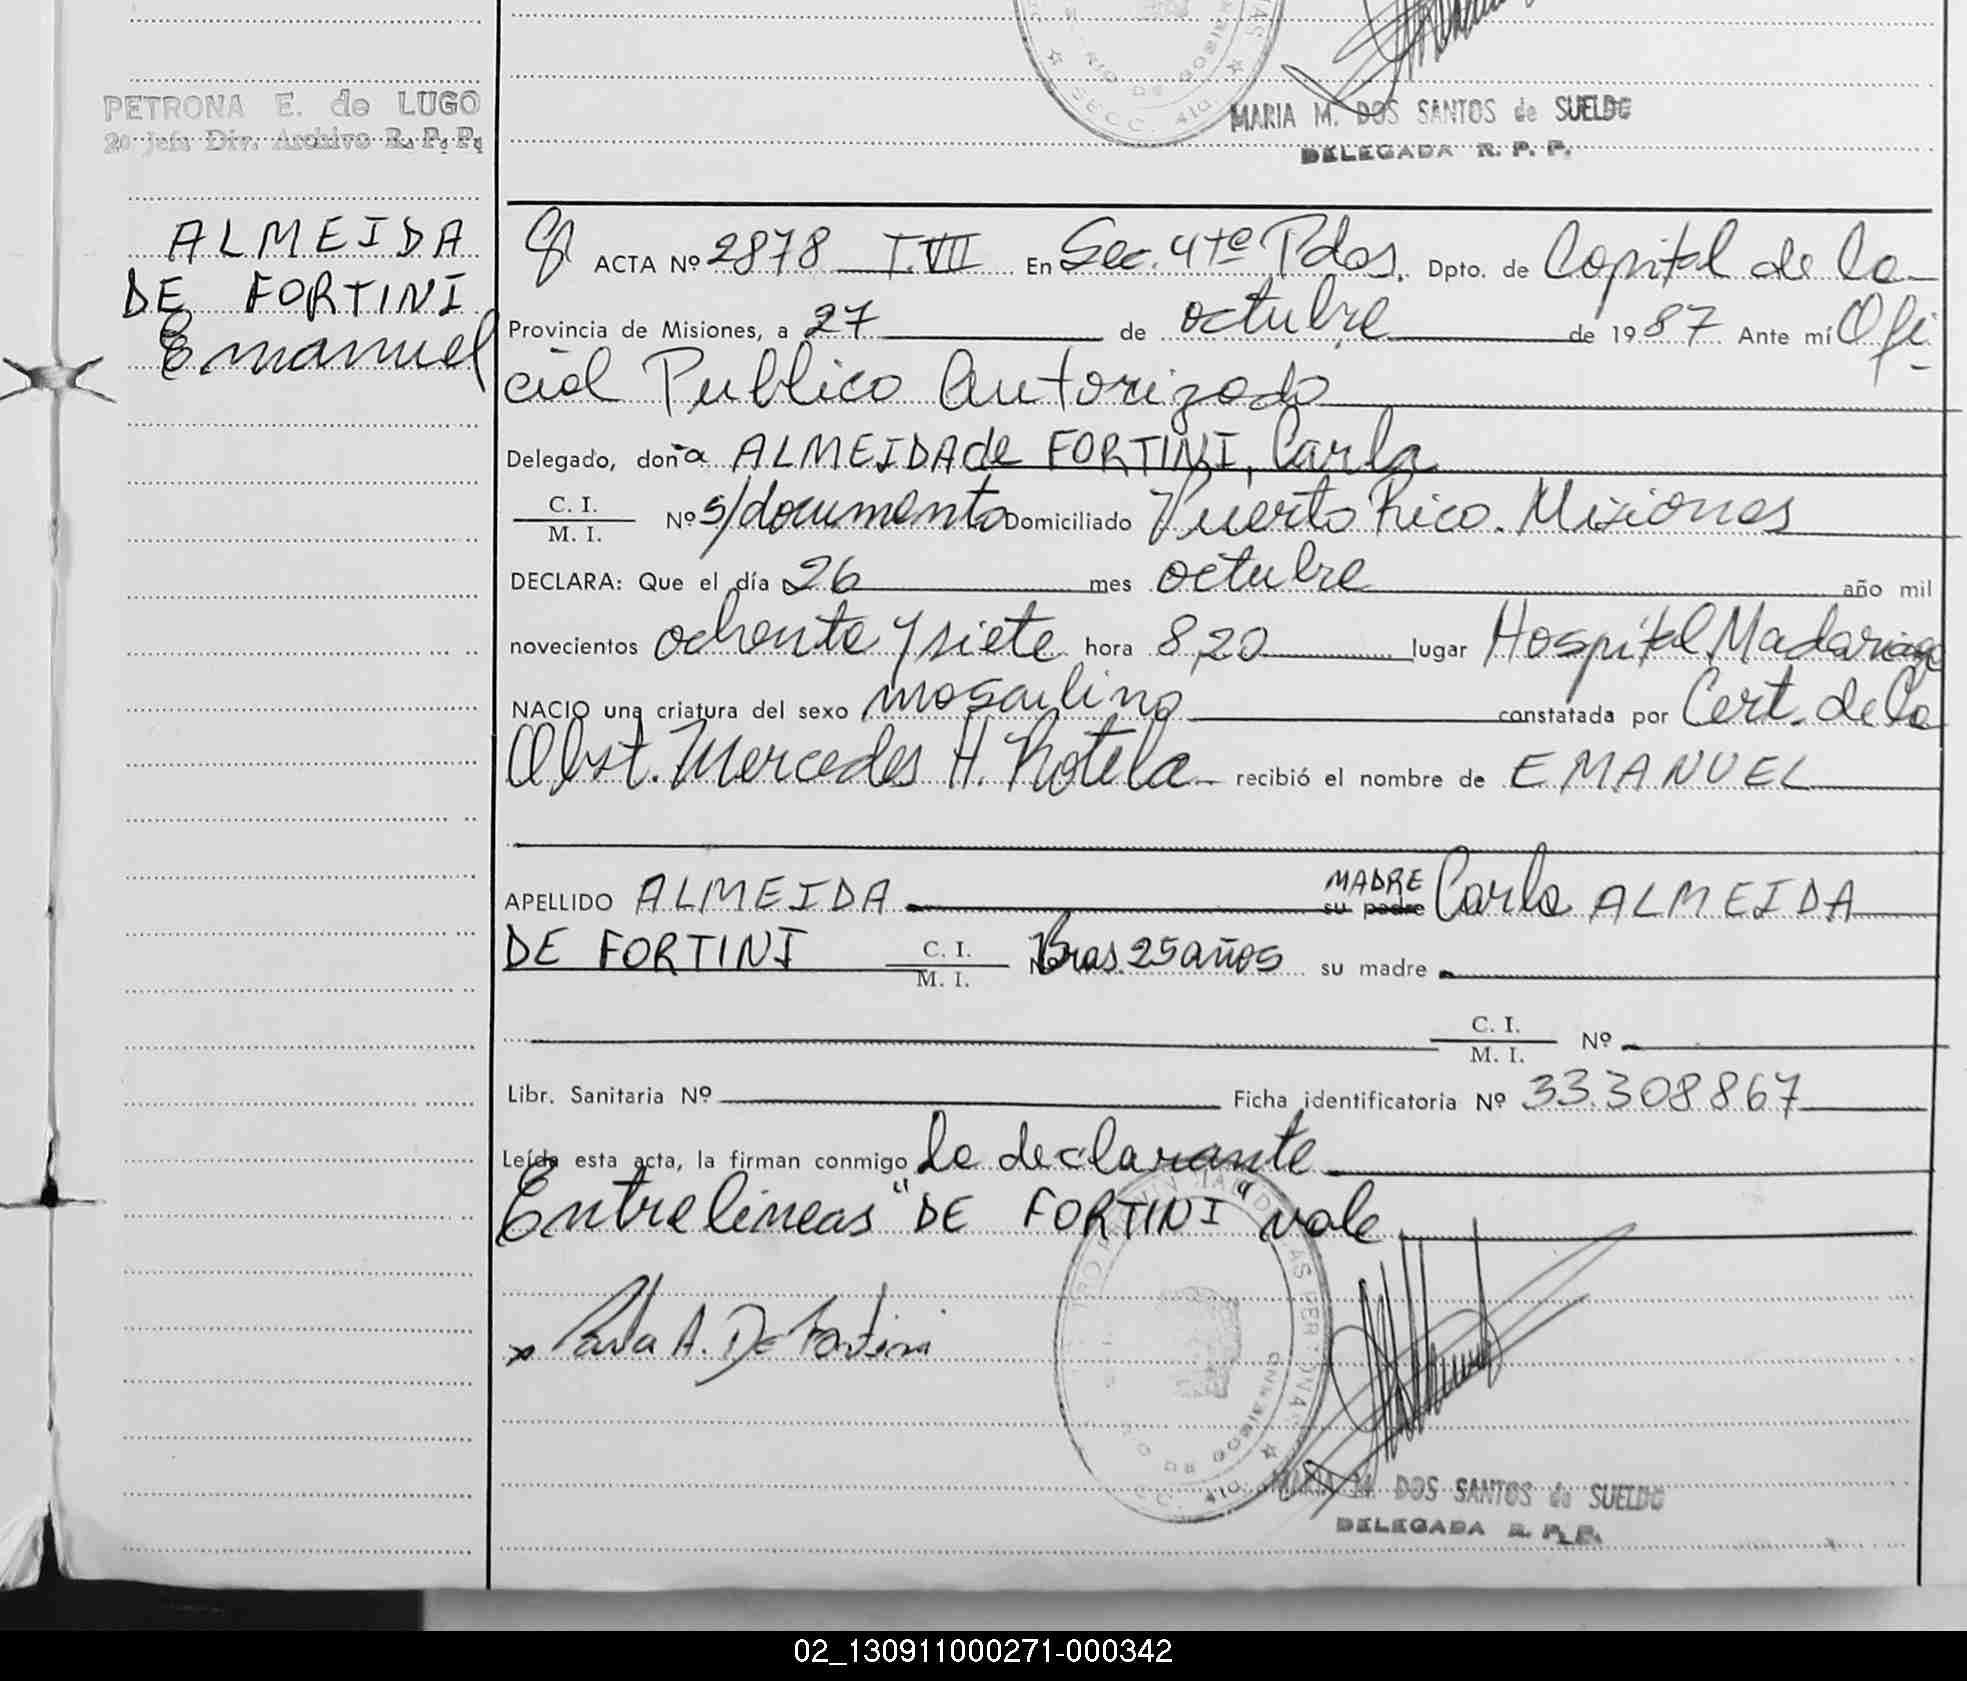 PETRONA E. de LUGO
2o Jefa Div. Archivo R. P. P.
SECC. 4ta
MARIA M. DOS SANTOS de SUELDO
DELEGADA R. P. P.
ALMEIDA
DE FORTINI
Emanuel
ACTA Nº 2878 T.VII En Sec. 4ta Pdas. Dpto. de Capital de la
Provincia de Misiones, a 27 de octubre de 1987 Ante mí Ofi-
cial Publico Autorizado
Delegado, doña ALMEIDA de FORTINI, Carla
C. I.
M. I. Nº s/documento Domiciliado Puerto Rico. Misiones
DECLARA: Que el día 26 mes octubre año mil
novecientos ochenta y siete hora 8,20 lugar Hospital Madariaga
NACIO una criatura del sexo masculino constatada por Cert. de la
Obst. Mercedes H. Rotela recibió el nombre de EMANUEL
APELLIDO ALMEIDA MADRE su padre Carla ALMEIDA
DE FORTINI C. I. M. I. Bras. 25 años su madre
C. I.
M. I. Nº
Libr. Sanitaria Nº Ficha identificatoria Nº 33.308867
Leída esta acta, la firman conmigo la declarante
Entrelineas "DE FORTINI" vale
x Carla A. De Fortini
MARIA M. DOS SANTOS de SUELDO
DELEGADA R. P. P.
02_130911000271-000342